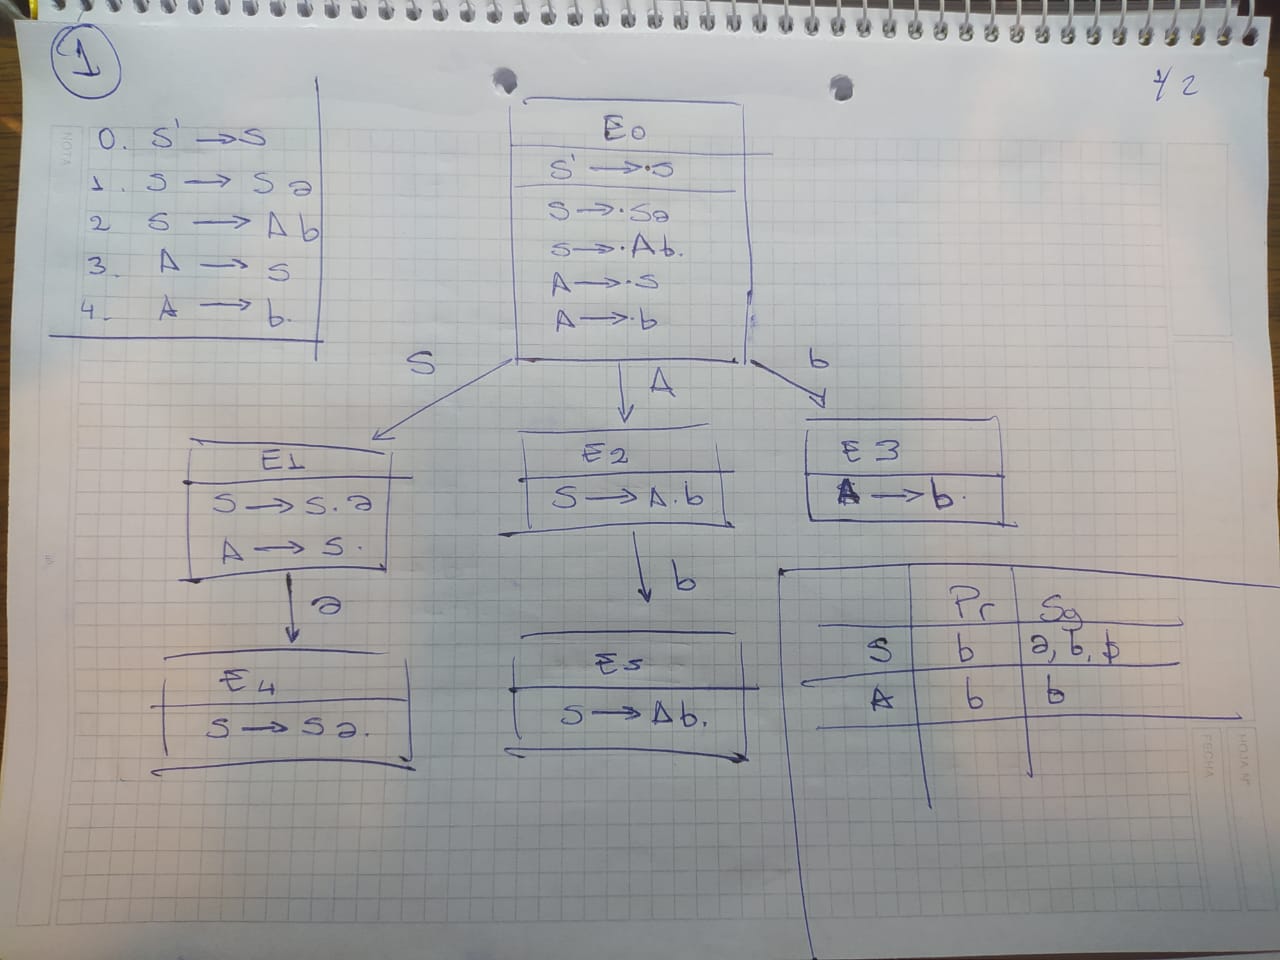 1
1/2
0. S' → S
1. S → Sa
2 S → Ab
3. A → S
4. A → b.
E0
S' → ·S
S → ·Sa
S → ·Ab.
A → ·S
A → ·b
S
A
b
E1
S → S.a
A → S.
E2
S → A.b
E3
A → b.
a
b
E4
S → Sa.
E5
S → Ab.
Pr Sg
S b a, b, $
A b b
NOTA
HOJA Nº
FECHA